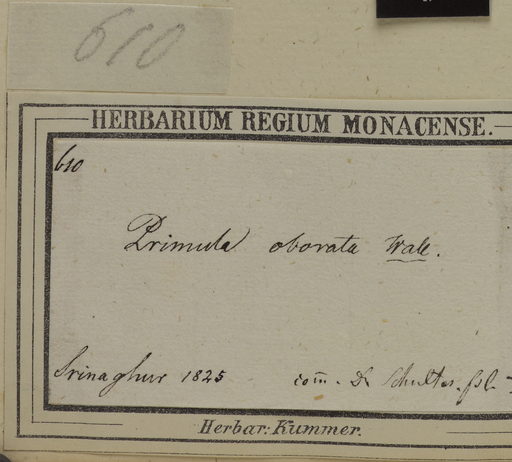 610
HERBARIUM REGIUM MONACENSE.
610
Primula obovata Wall.
Srinaghur 1825 com̄. D. Schultes. fil.
Herbar: Kummer.